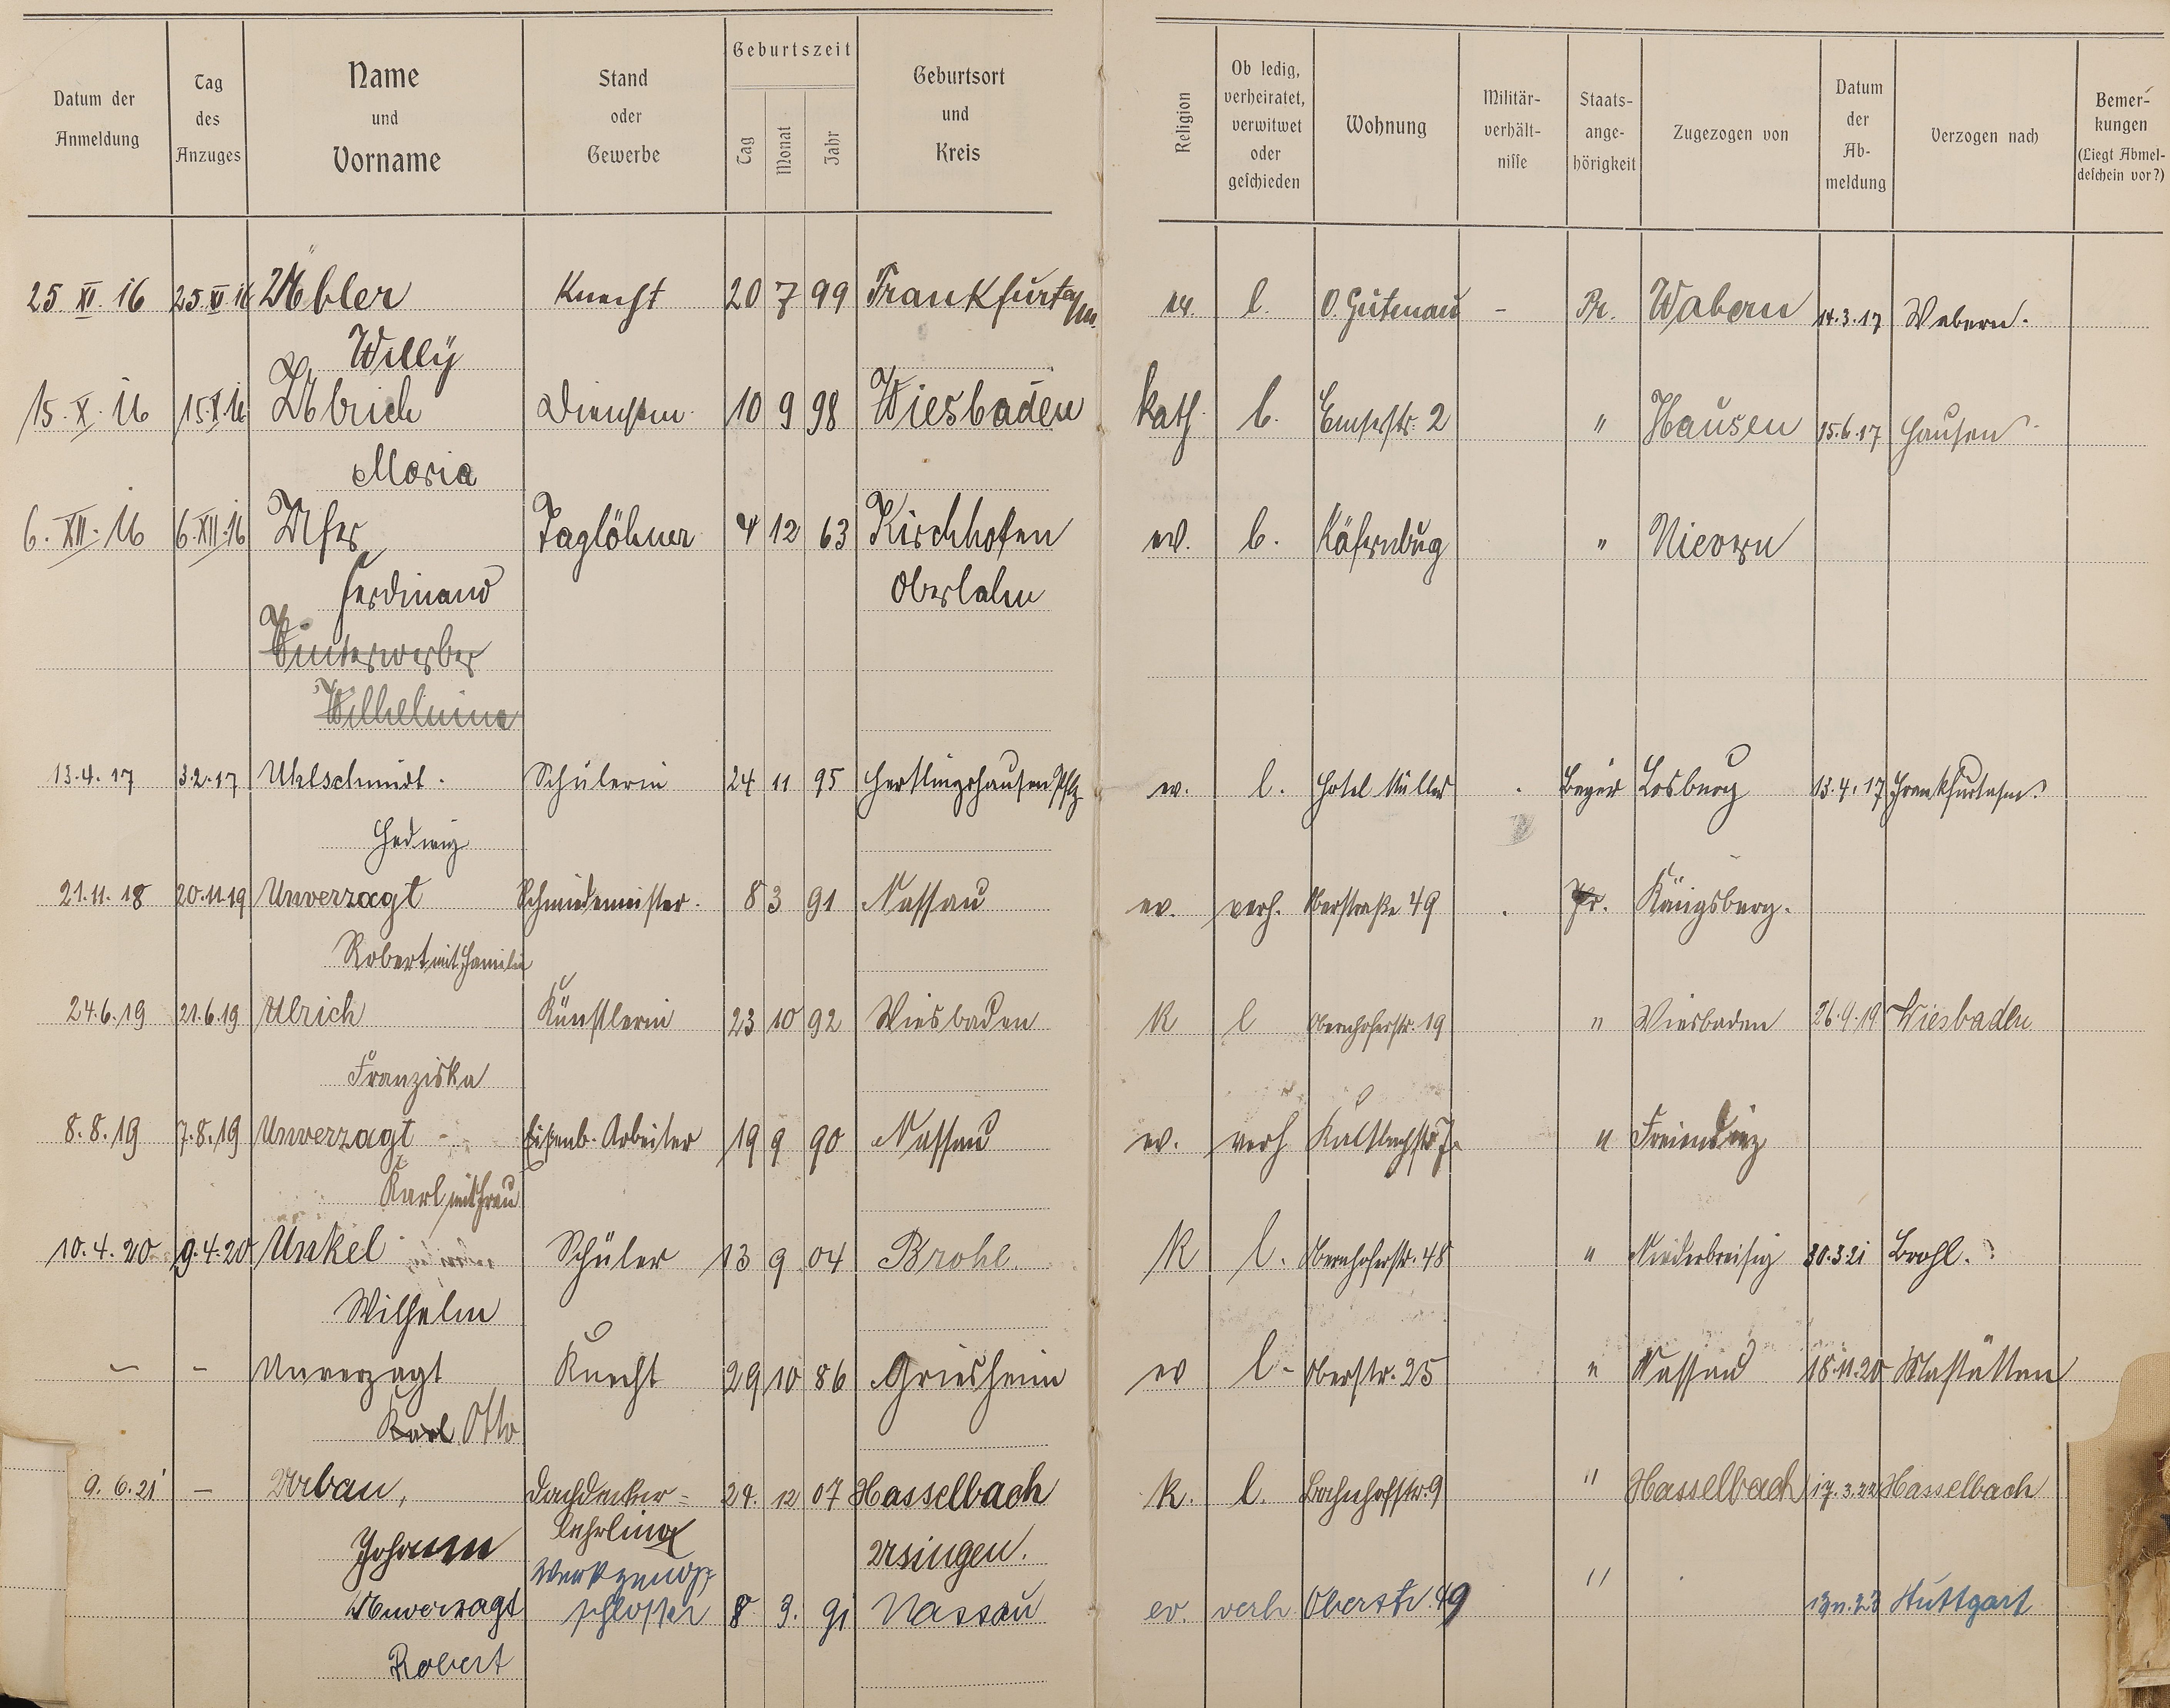 Datum der Anmeldung
Tag des Anzuges
Name und Vorname
Stand oder Gewerbe
Geburtszeit
Tag Monat Jahr
Geburtsort und Kreis
Religion
Ob ledig, verheiratet, verwitwet oder geschieden
Wohnung
Militär-verhält-nisse
Staats-ange-hörigkeit
Zugezogen von
Datum der Ab-meldung
Verzogen nach
Bemer-kungen
(Liegt Abmel-deschein vor?)
25 XI. 16 25. XI. 16 Übler Knecht 20 7 99 Frankfurt a/m. ev. l. O. Gutenau - Pr. Wabern 14.3.17 Wabern.
Willÿ
15. X. 16 15. X. 16 Ulbrich Dienstm. 10 9 98 Wiesbaden kath. l. Emserstr. 2 " Hausen 15.6.17 Hausen
Maria
6. XII. 16 6. XII. 16 Ufer Taglöhner 4 12 63 Kirchhofen ev. l. Käfernbug " Nievern
Ferdinand Oberlahn
Winterwerber
Wilhelmina
13.4.17 3.2.17 Uhlschmidt. Schülerin 24 11 95 Hertlingshausen Pflz ev. l. Hotel Müller . Bayer Losburg 13.4.17 Frankfurt a/m.
Hedwig
21.11.18 20.11.19 Unverzagt Schmiedemeister. 8 3 91 Nassau ev. verh. Oberstraße 49 . Pr. Königsberg.
Robert mit Familie
24.6.19 21.6.19 Ulrich Künstlerin 23 10 92 Wiesbaden K l Obernhoferstr. 19 " Wiesbaden 26.9.19 Wiesbaden
Franziska
8.8.19 7.8.19 Unverzagt Eisenb. Arbeiter 19 9 90 Nassau ev. verh Kaltbachstr 7. " Freiendiez
Karl mit Frau
10.4.20 9.4.20 Unkel Schüler 13 9 04 Brohl K l. Obernhoferstr. 48 " Niederbreisig 30.3.21 Brohl.
Wilhelm
- - Unverzagt Knecht 29 10 86 Griesheim ev l- Oberstr. 25 " Nassau 18.11.20 Nastätten
Karl Otto
9.6.21 - Urban, Dachdecker- 24. 12 07 Hasselbach K. l. Bahnhofstr. 9 " Hasselbach 17.3.22 Hasselbach
Johann Lehrling Usingen.
Werkzeug-
Unverzagt schlosser 8 3. 91 Nassau ev. verh Oberstr. 49 " 13.11.23 Stuttgart
Robert